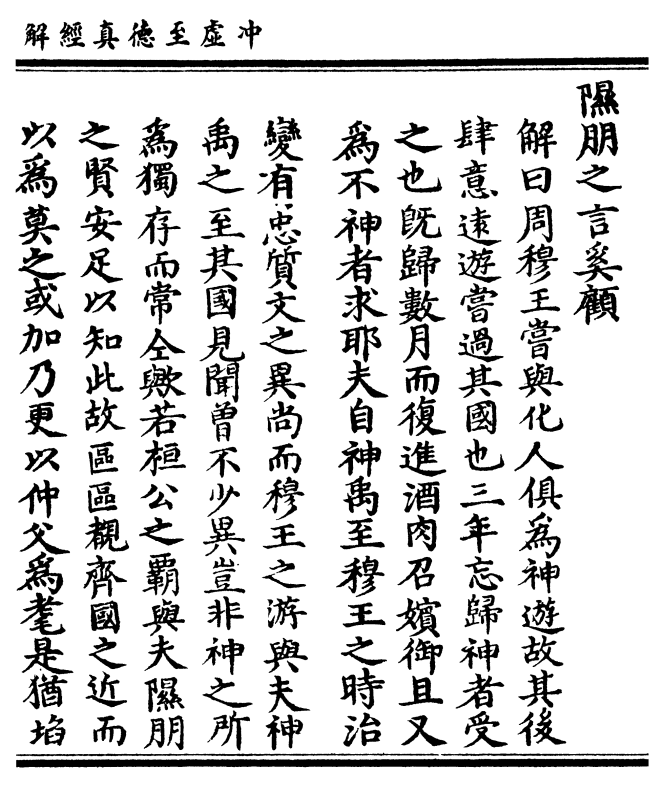 冲虛至德真經解
隰朋之言奚顧
解曰周穆王嘗與化人俱為神遊故其後
肆意逺遊嘗過其國也三年忘歸神者受
之也旣歸數月而復進酒肉召嬪御且又
為不神者求耶夫自神禹至穆王之時治
變有忠質文之異尚而穆王之游與夫神
禹之至其國見聞曾不少異豈非神之所
為獨存而常仝歟若桓公之霸與夫隰朋
之賢安足以知此故區區覩齊國之近而
以為莫之或加乃更以仲父為耄是猶埳